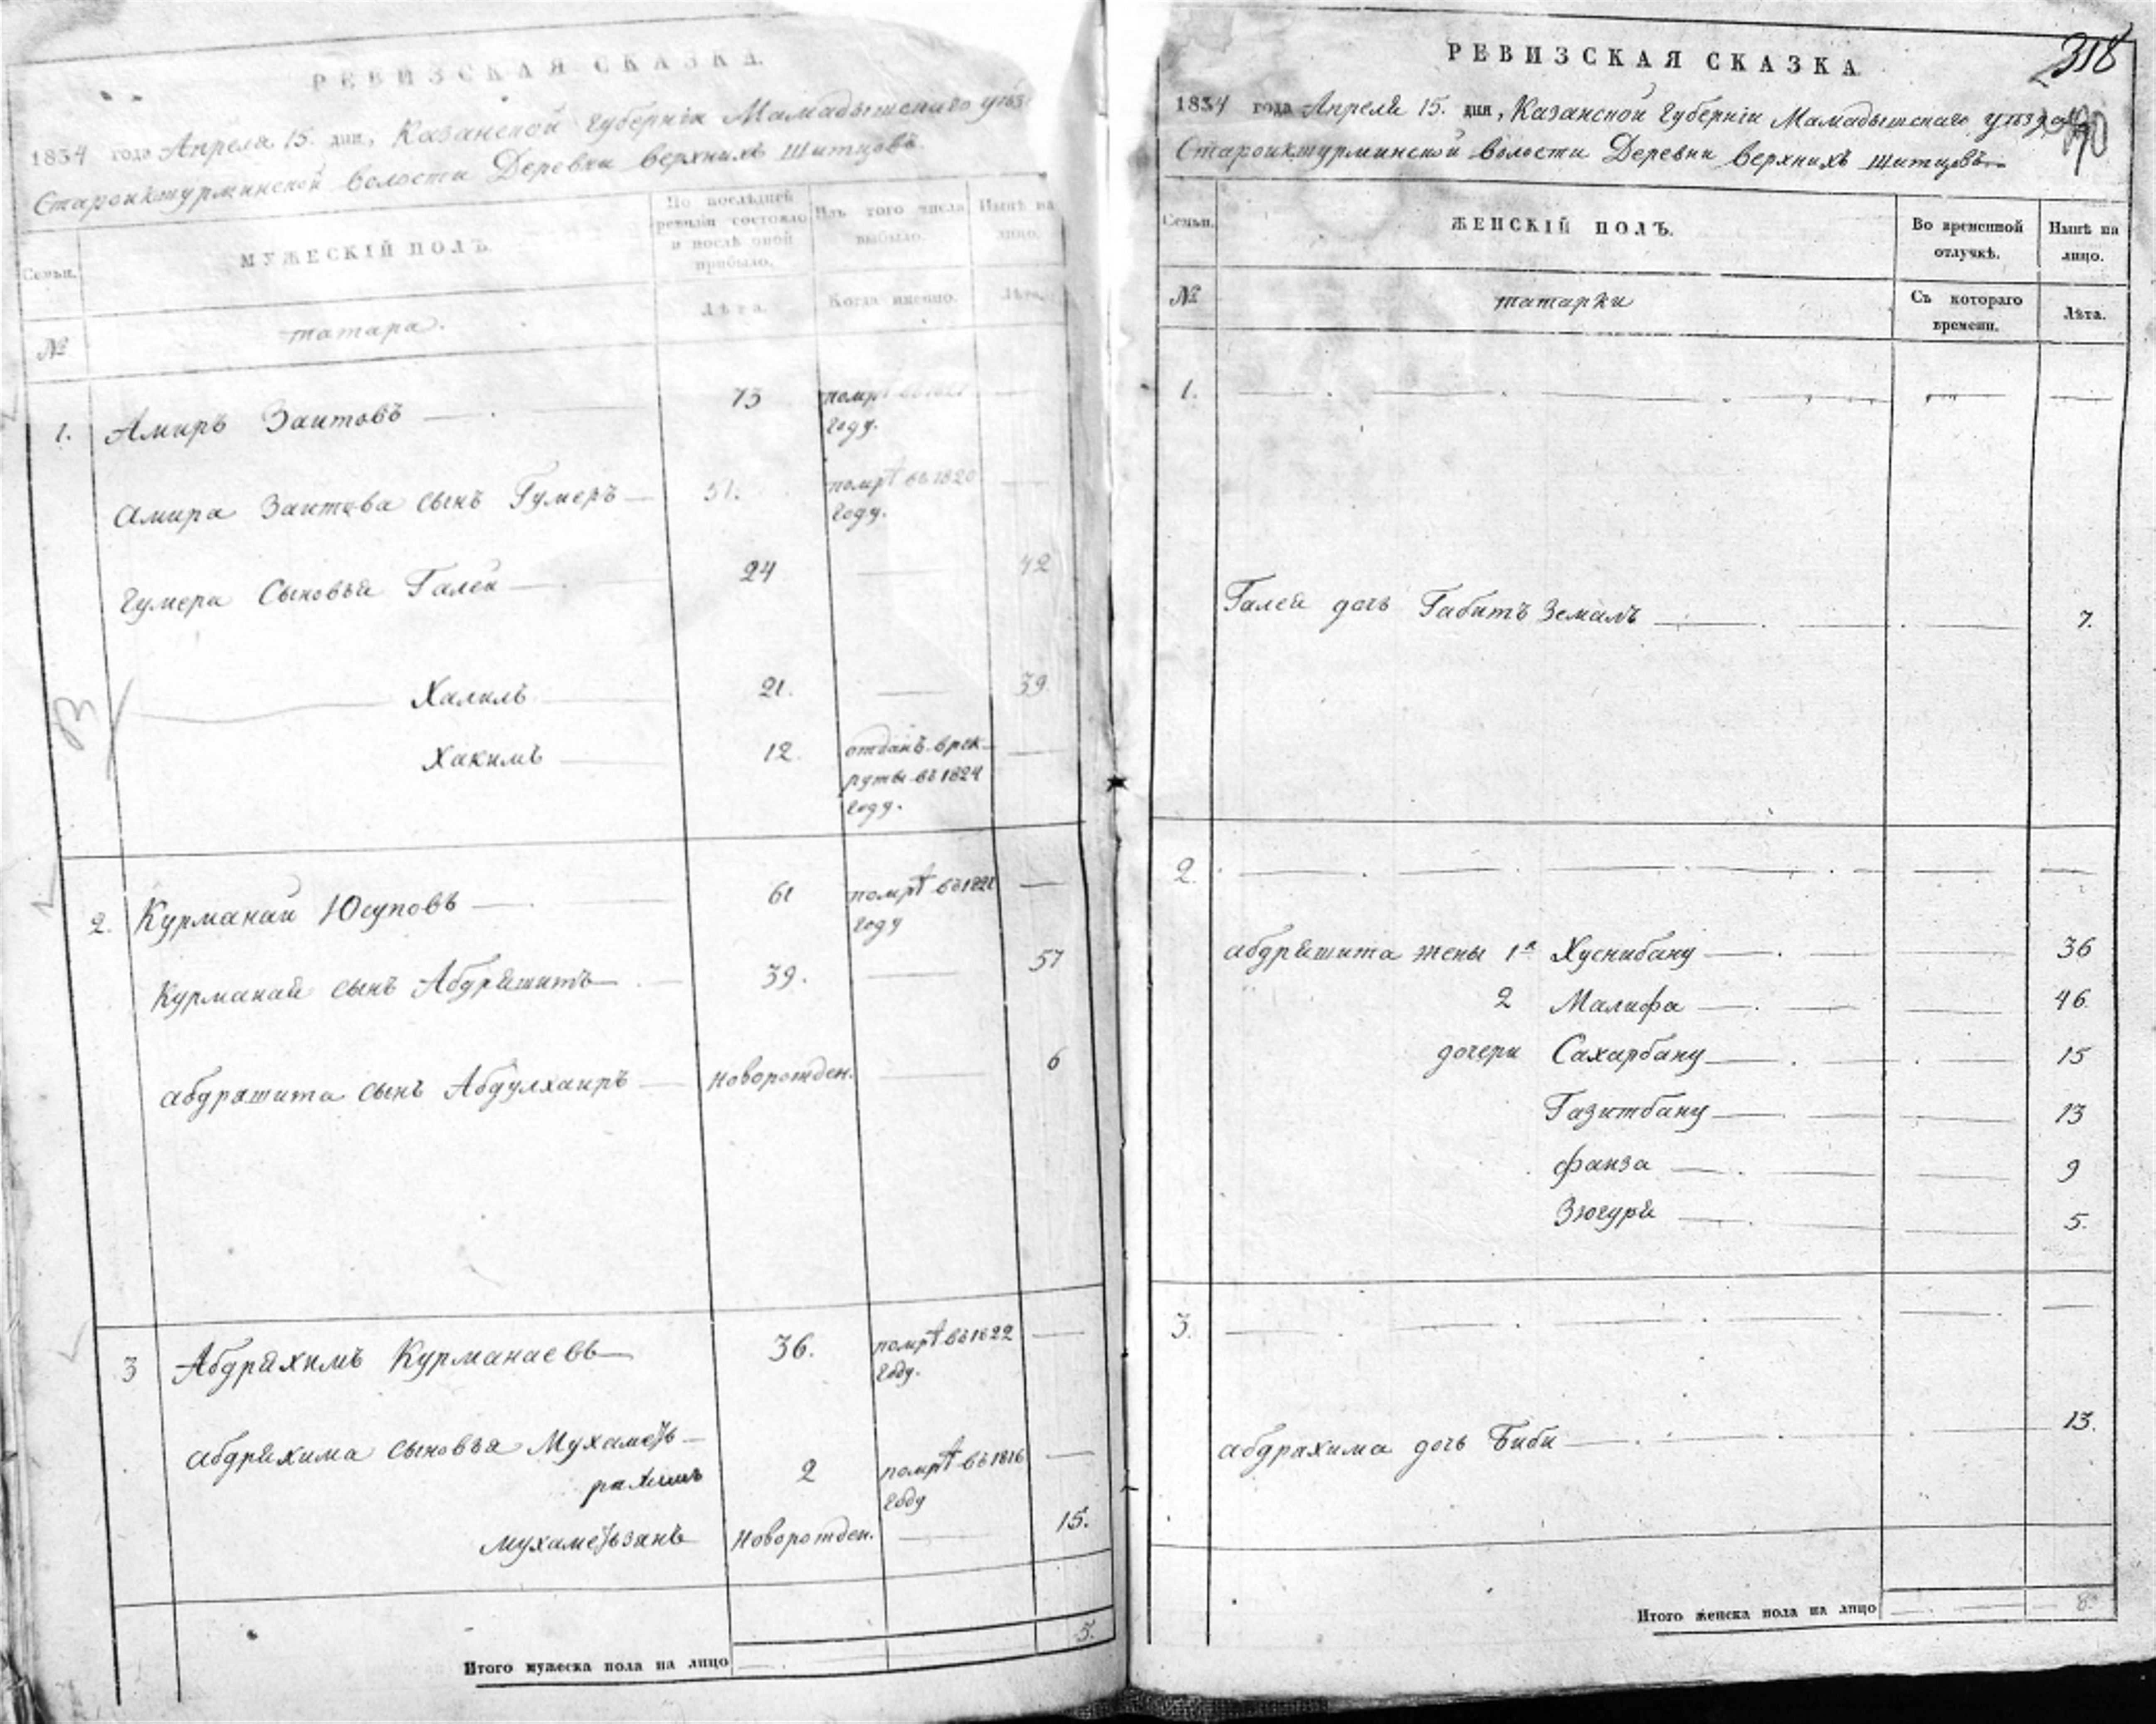 РЕВИЗСКАЯ СКАЗКА.
1834 года Апреля 15. дня, Казанской Губерніи Мамадышскаго уѣз
Староикшурминской волости Деревни верхнихъ Шитцовъ.
Семьи.
МУЖЕСКІЙ ПОЛЪ.
По послѣдней ревизіи состояло и послѣ оной прибыло.
Изъ того числа выбыло.
Нынѣ на лицо.
№
татара.
Лѣта.
Когда именно.
Лѣта.
1. Амиръ Заитовъ 73 помрѣ
году.
Амира Заитова сынъ Гумеръ 51. помрѣ въ 1820
году.
Гумера Сыновья Галей 24 42
Халилъ 21. 39
Хакимъ 12. отданъ врек-
руты въ 1824
году.
2. Курманай Юсуповъ 61 помрѣ въ 1821
году
Курманай сынъ Абдряшитъ 39. 57
абдряшита сынъ Абдулхаиръ новорожден. 6
3 Абдряхимъ Курманаевъ 36. помрѣ въ 1822
году.
абдряхима сыновья Мухаметь
рахимъ 2 помрѣ въ 1816
году
мухаметьзянъ Новорожден. 15.
Итого мужеска пола на лицо 5.
РЕВИЗСКАЯ СКАЗКА
318
1834 года Апреля 15. дня, Казанской Губерніи Мамадышскаго уѣзда
190
Староикшурминской волости Деревни верхнихъ Шитцовъ
Семьи.
ЖЕНСКІЙ ПОЛЪ.
Во временной отлучкѣ.
Нынѣ на лицо.
№
татарки
Съ котораго времени.
Лѣта.
1.
Галея дочь Габитъ Земалъ 7.
2.
абдряшита жены 1я Хуснибану 36
2 Малифа 46.
дочери Сахарбану 15
Газитбану 13
фаиза 9
Зюгуря 5.
3.
абдрахима дочь Биби 13.
Итого женска пола на лицо 8.